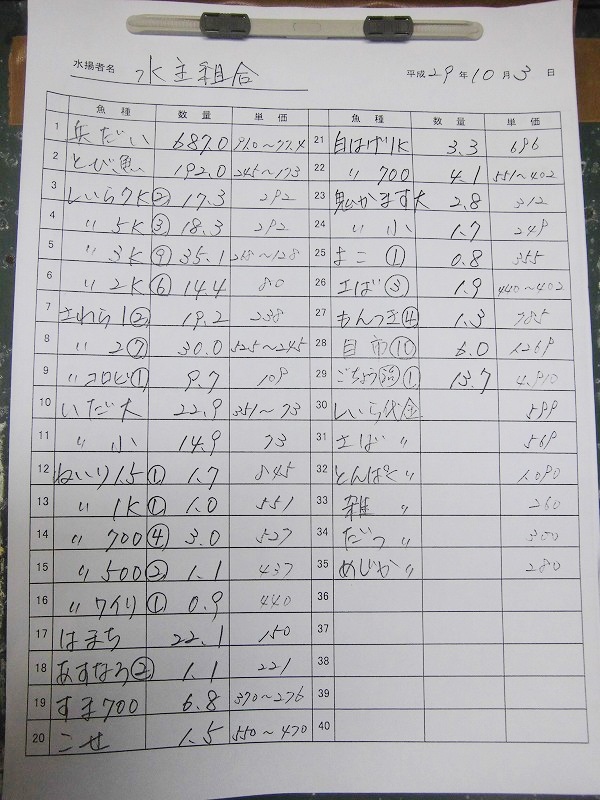 水揚者名 水主組合
平成29年10月3日
魚種 数量 単価
1 兵だい 687.0 910~77.4
2 とび魚 192.0 245~173
3 しいら7K② 17.3 292
4 〃 5K③ 18.3 292
5 〃 3K⑨ 35.1 218~128
6 〃 2K⑥ 14.4 80
7 さわら1② 19.2 238
8 〃 2⑦ 30.0 525~245
9 〃コロビ① 9.7 109
10 いだ大 22.9 351~73
11 〃 小 14.9 73
12 ねいり1.5① 1.7 845
13 〃 1K① 1.0 551
14 〃 700④ 3.0 527
15 〃 500② 1.1 437
16 〃 ワイリ① 0.9 440
17 はまち 22.1 150
18 あすなろ② 1.1 221
19 すま700 6.8 370~276
20 こせ 1.5 550~470
魚種 数量 単価
21 白はげ1K 3.3 696
22 〃 700 4.1 551~402
23 鬼かます大 2.8 312
24 〃 小 1.7 249
25 まこ ① 0.8 355
26 さば③ 1.9 440~402
27 もんつき④ 1.3 785
28 目市⑩ 6.0 1.269
29 ごちょう ① 13.7 4.910
30 しいら代金 599
31 さば 〃 569
32 とんぱく〃 1.090
33 雑 〃 260
34 だつ 〃 300
35 めじか〃 280
36
37
38
39
40